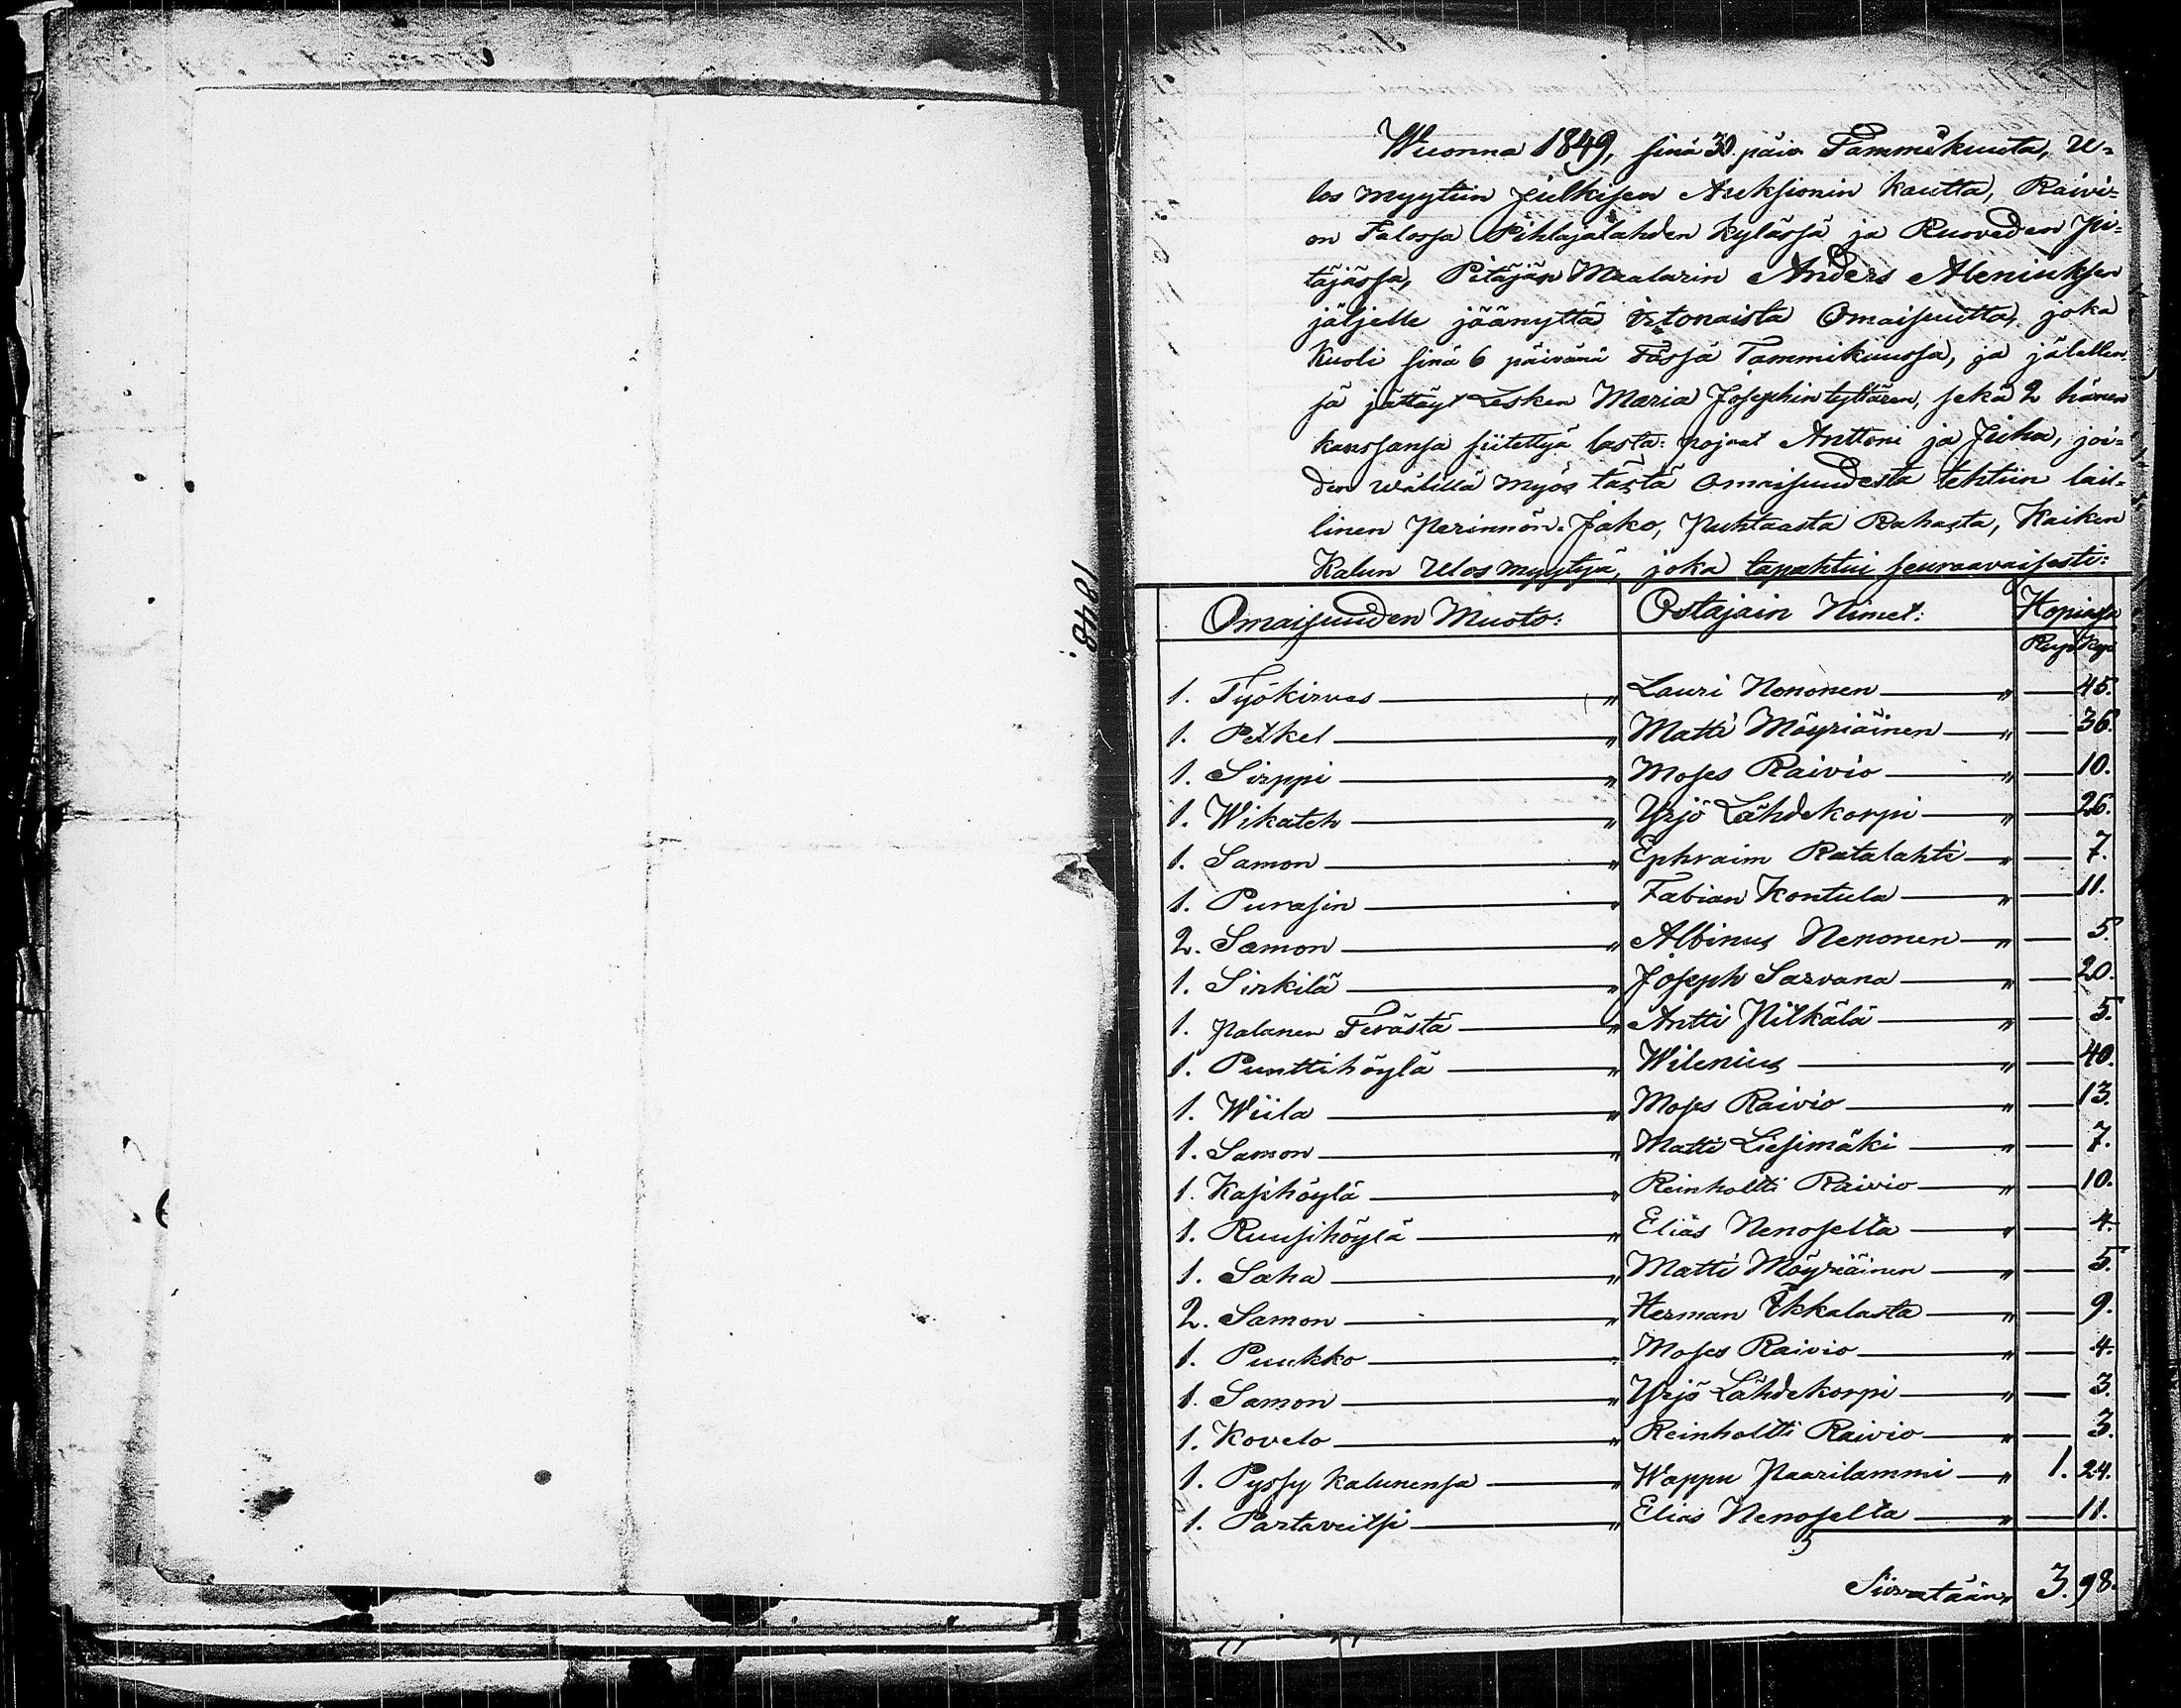 1848.
Wuonna 1849, sinä 30. päiv. Tammikuuta, U-
los myytiin Julkisen Auksionin kautta, Raivi-
on Talossa Pihlajalahden Kylässä ja Ruoveden Pi-
täjässä, Pitäjän Maalarin Anders Aleniuksen
jäljelle jäänyttä irtonaista Omaisuutta, joka
Kuoli sinä 6 päivänä Tässä Tammikuussa, ja jälellen
sä jättäyt Lesken Maria Josephin tyttären, sekä 2 hänen
kanssansa siitettyä lasta: pojaat Anttoni ja Juha, joi-
den wälillä myös tästä Omaisuudesta tehtiin lail-
linen Perinnön-Jako, Puhtaasta Rahasta, Kaiken
Kalun Ulos myytyä, joka tapahtui seuraavaisesti:
Omaisuuden Muoto: Ostajain Nimet: Hopiassa
Rup Kop
1. Työkirves — „ Lauri Nononen — „ — 45.
1. Petkel — „ Matti Möyriäinen — „ — 36.
1. Sirppi — „ Moses Raivio — „ — 10.
1. Wikateh — „ Yrjö Lähdekorpi — „ — 26.
1. Samon — „ Ephraim Ratalahti — „ — 7.
1. Purasin — „ Fabian Kontula — „ — 11.
2. Samon — „ Albinus Nenonen — „ — 5.
1. Sirkilä — „ Joseph Sarvana — „ — 20.
1. Palanen Terästä — „ Antti Pitkälä — „ — 5.
1. Punttihöylä — „ Wilenius — „ — 40.
1. Wiila — „ Moses Raivio — „ — 13.
1. Samon — „ Matti Liesimäki — „ — 7.
1. Kasihöylä — „ Reinholtti Raivio — „ — 10.
1. Ruusihöylä — „ Elias Nenoselta — „ — 4.
1. Saha — „ Matti Möyriäinen — „ — 5.
2. Samon — „ Herman Ukkalasta — „ — 9.
1. Puukko — „ Moses Raivio — „ — 4.
1. Samon — „ Yrjö Lähdekorpi — „ — 3.
1. Kovelo — „ Reinholtti Raivio — „ — 3.
1. Pyssy kalunensa — „ Wappu Paarilammi — „ 1. 24.
1. Partaveitsi — „ Elias Nenoselta — „ — 11.
Siirretään, 3. 98.